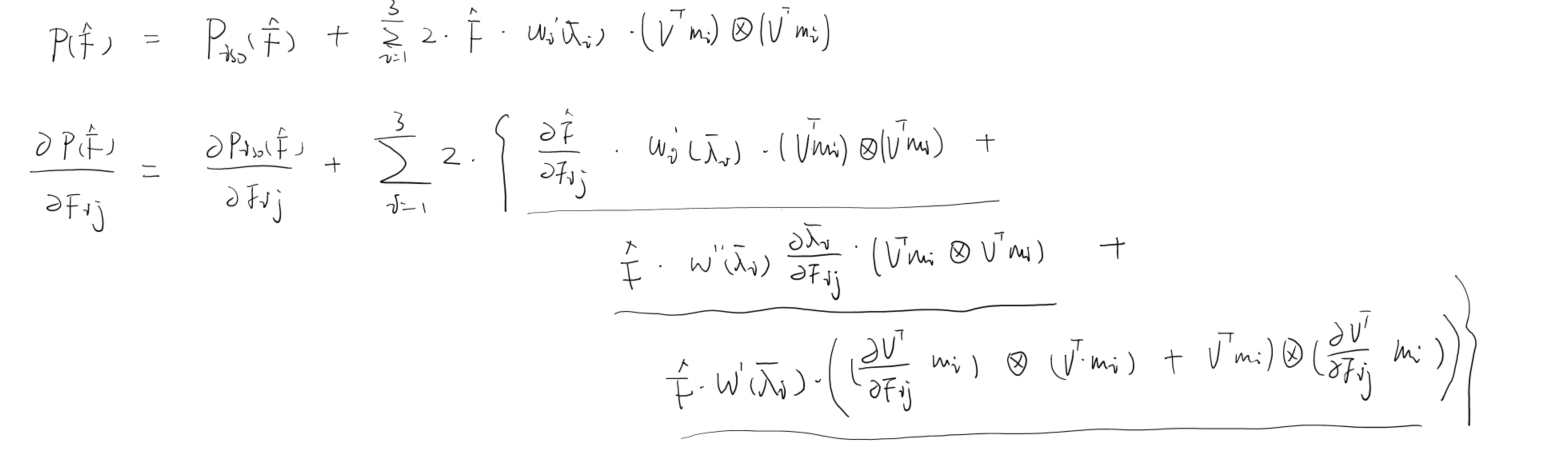 P(F̂) = P_iso(F̂) + Σ_{i=1}^{3} 2 · F̂ · w_i'(λ̄_i) · (V^T m_i) ⊗ (V^T m_i)
∂P(F̂)/∂F_ij = ∂P_iso(F̂)/∂F_ij + Σ_{i=1}^{3} 2 · { ∂F̂/∂F_ij · w_i'(λ̄_i) · (V^T m_i) ⊗ (V^T m_i) +
F̂ · w''(λ̄_i) ∂λ̄_i/∂F_ij · (V^T m_i ⊗ V^T m_i) +
F̂ · w'(λ̄_i) · ((∂V^T/∂F_ij m_i) ⊗ (V^T · m_i) + V^T m_i) ⊗ (∂V^T/∂F_ij m_i)) }